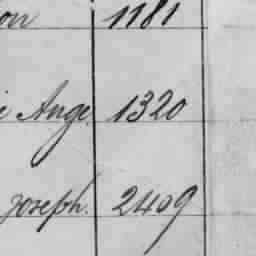 on 1181
e Ange. 1320
joseph. 2409